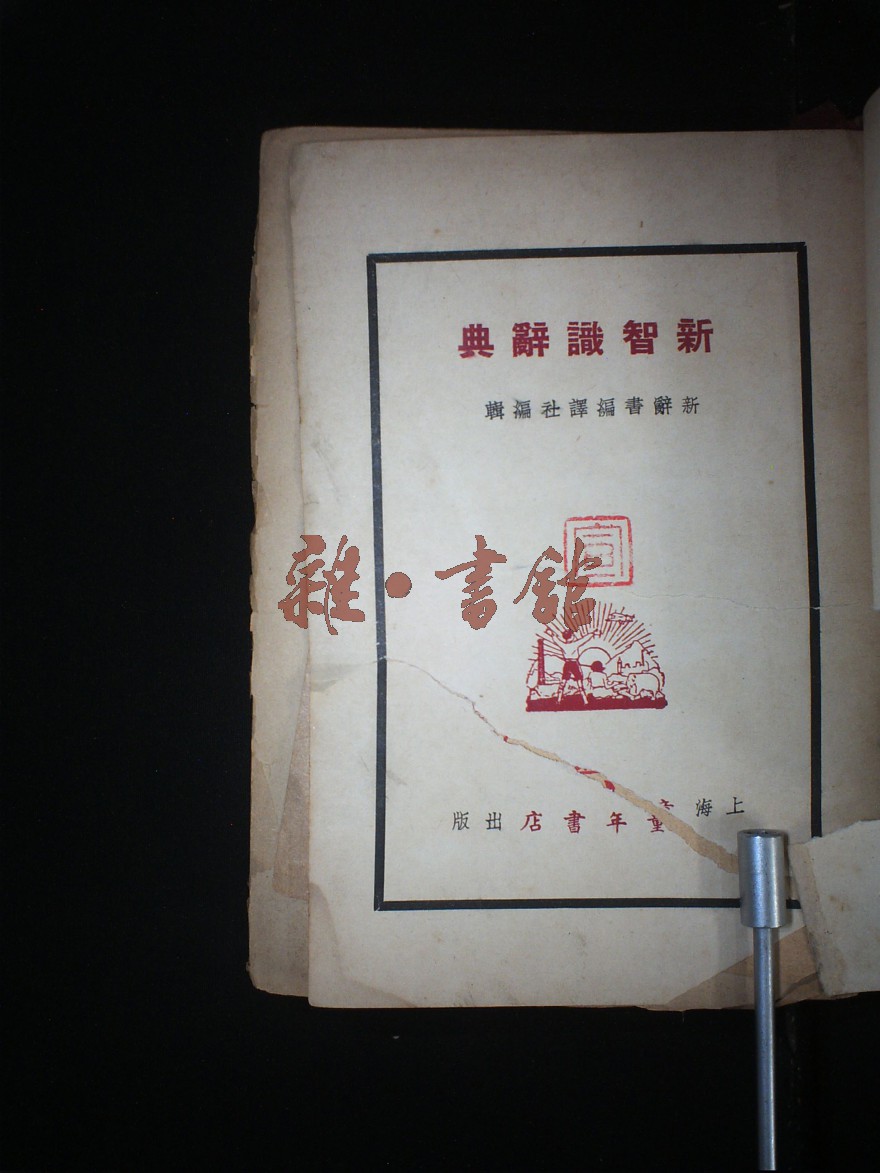 新智識辭典
新辭書編譯社編輯
雜・書館
上海童年書店出版